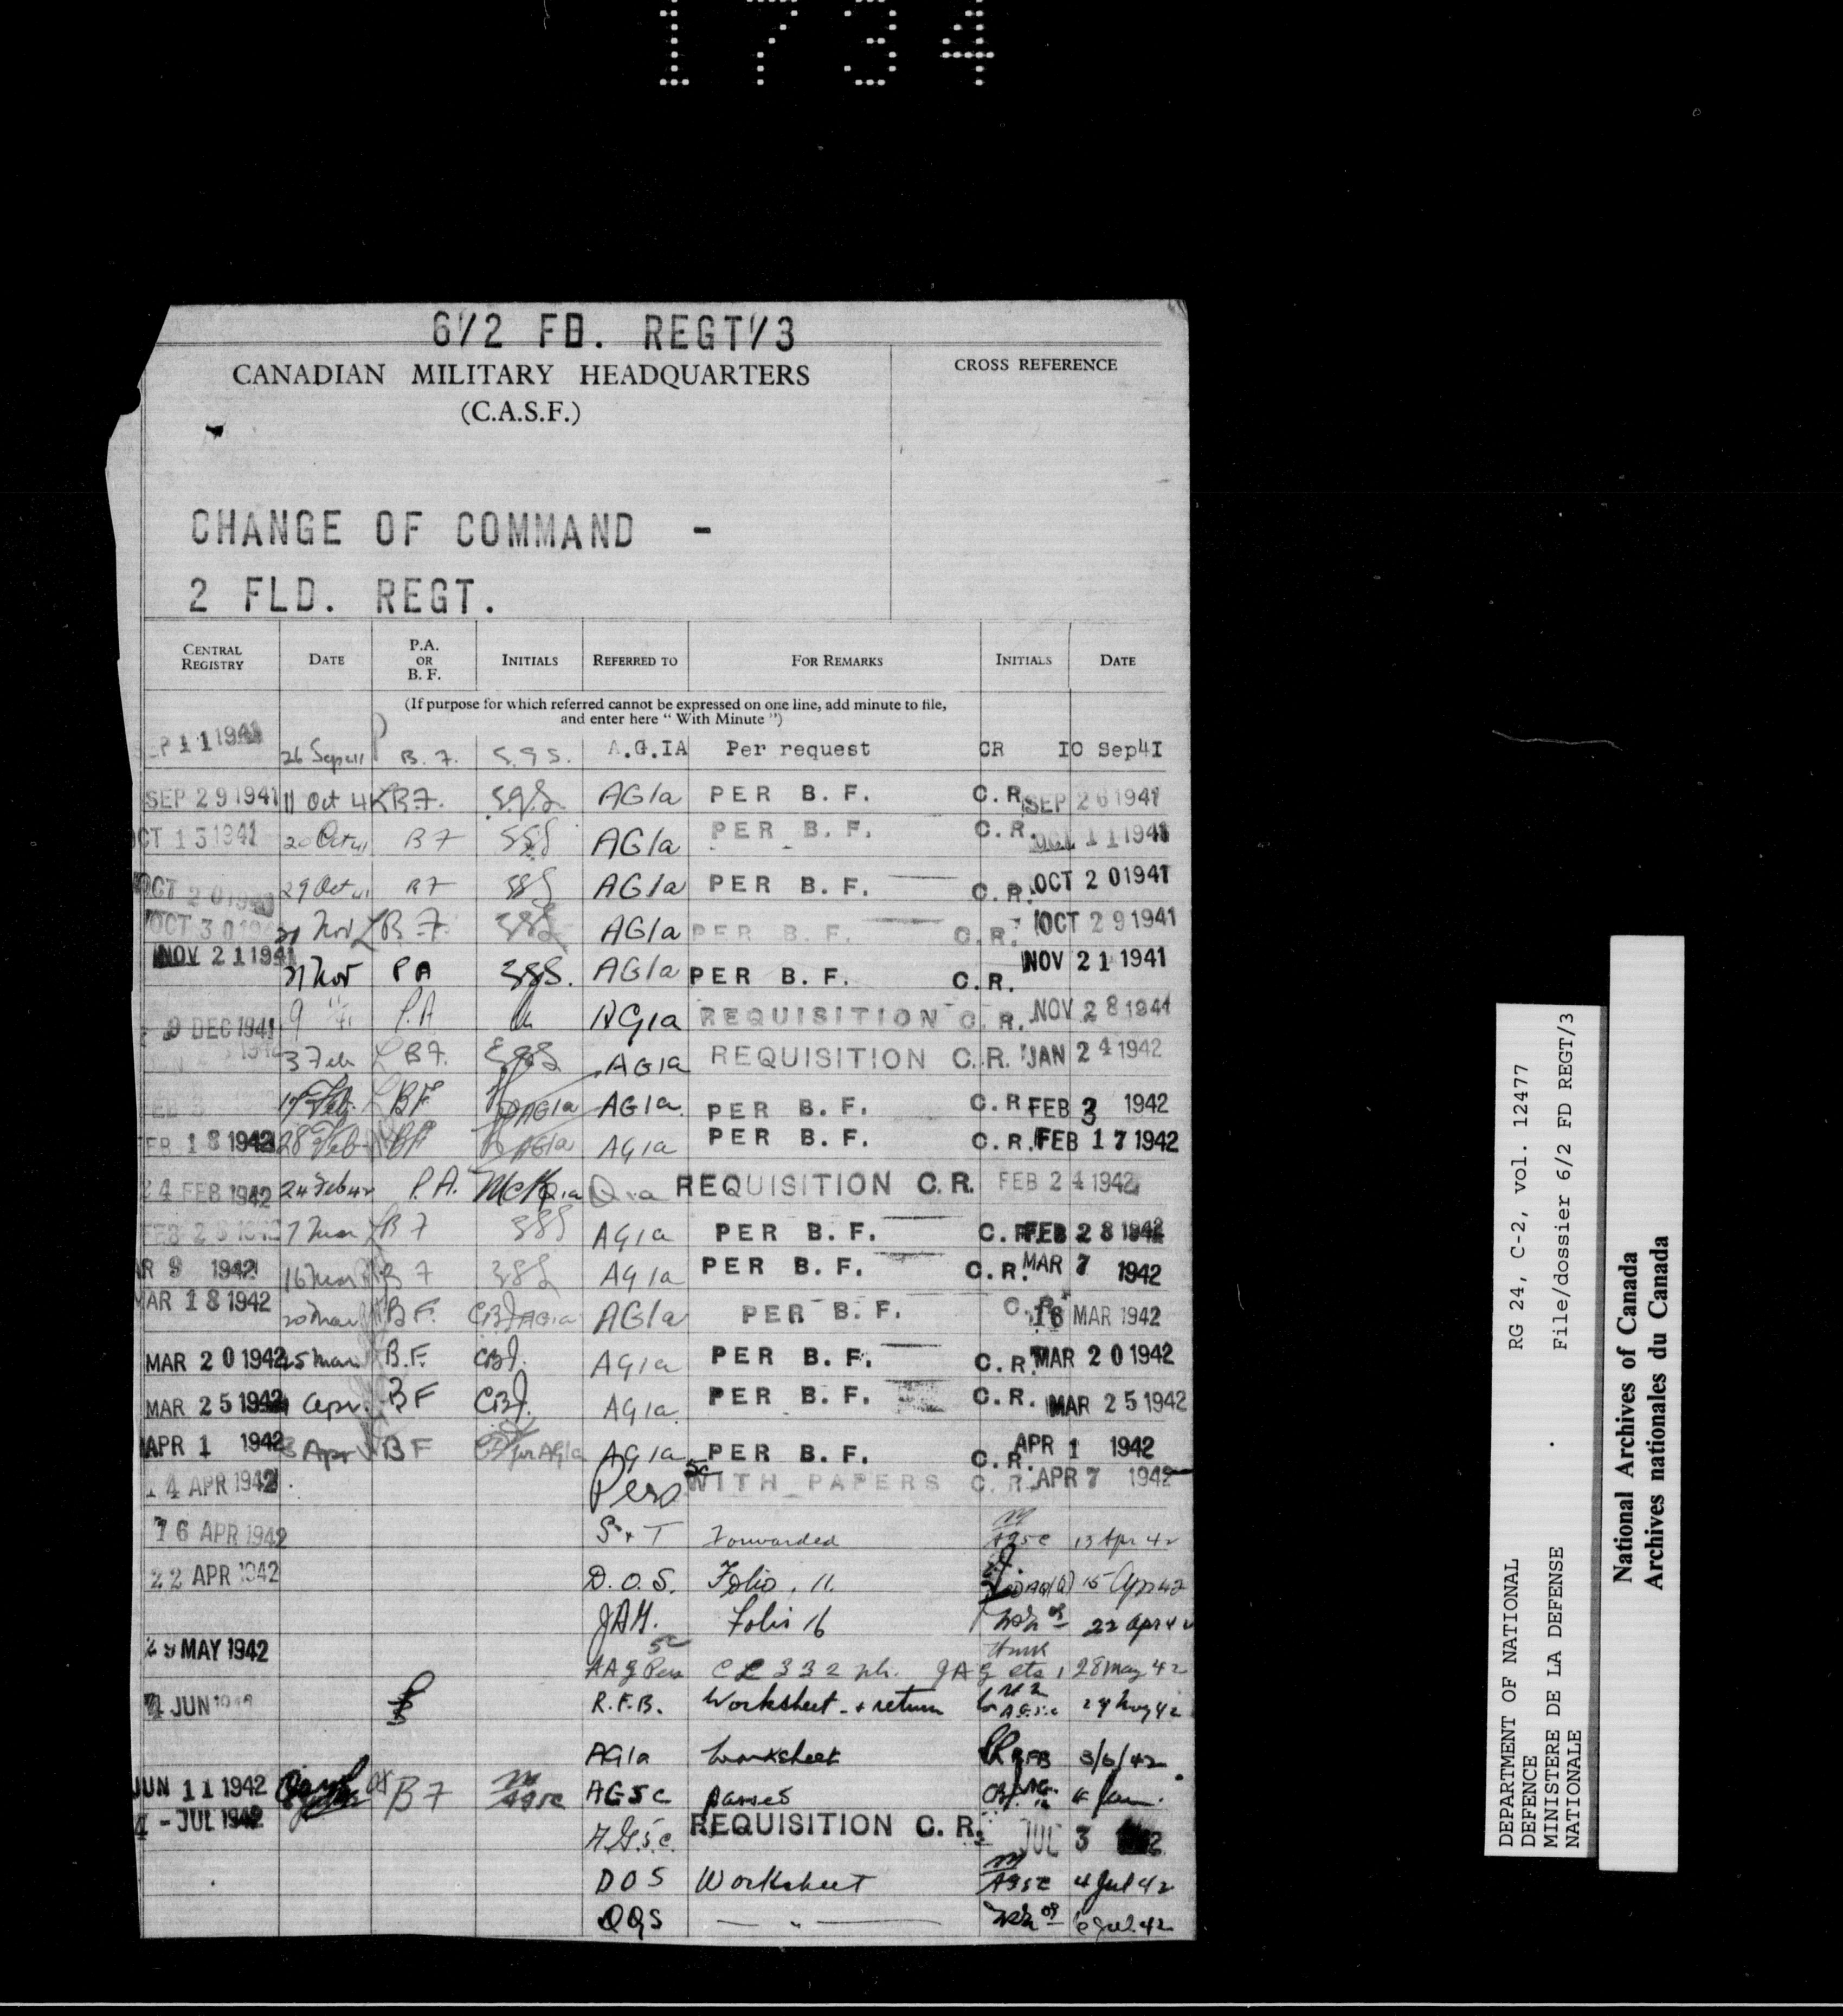 1734
6/2 FD. REGT/3
CANADIAN MILITARY HEADQUARTERS
(C.A.S.F.)
CROSS REFERENCE
CHANGE OF COMMAND -
2 FLD. REGT.
CENTRAL REGISTRY DATE P.A. OR B. F. INITIALS REFERRED TO FOR REMARKS INITIALS DATE
(If purpose for which referred cannot be expressed on one line, add minute to file,
and enter here “ With Minute ”)
EP 11 1941 26 Sep 41 B. F. S.G.S. A.G.IA Per request CR IO Sep4I
SEP 29 1941 11 Oct 41 B.F. AG1a PER B. F. C.R. SEP 26 1941
OCT 13 1941 20 Oct 41 BF AG1a PER B. F. C.R. OCT 11 1941
OCT 20 29 Oct 41 BF AG1a PER B. F. C.R. OCT 20 1941
OCT 30 Nov B.F. AG1a PER B. F. C.R. OCT 29 1941
NOV 21 1941 21 Nov PA AG1a PER B. F. C.R. NOV 21 1941
9 DEC 1941 9 P.A AG1a REQUISITION C. R. NOV 28 1941
3 Feb BF. AG1a REQUISITION C.R. JAN 24 1942
17 Feb. BF AG1a AG1a PER B. F. C.R FEB 3 1942
FEB 18 1942 28 Feb BF AG1a AG1a PER B. F. C.R. FEB 17 1942
24 FEB 1942 24 Feb 42 P.A. McK Q1a Q1a REQUISITION C.R. FEB 24 1942
FEB 28 1942 7 Mar BF AG1a PER B. F. C.R. FEB 28 1942
AR 9 1942 16 Mar BF AG1a PER B. F. C.R. MAR 7 1942
MAR 18 1942 20 Mar BF. AG1a AG1a PER B. F. C.R. 16 MAR 1942
MAR 20 1942 25 Mar B.F. AG1a PER B. F. C.R. MAR 20 1942
MAR 25 1942 Apr. BF AG1a PER B. F. C.R. MAR 25 1942
APR 1 1942 Apr BF for AG1a AG1a PER B. F. C.R. APR 1 1942
14 APR 1942 Pers 5c WITH PAPERS C. R. APR 7 1942
16 APR 1942 S + T Forwarded AG5c 13 Apr 42
22 APR 1942 D.O.S. Folio. 11. 15 Apr 42
JAG. Folio 16 22 Apr 42
29 MAY 1942 AAG Pers 5c JAG etc 28 May 42
4 JUN R.F.B. Worksheet - + return AG5c 29 May 42
AG1a Worksheet RFB 3/6/42
JUN 11 1942 BF AG5c AG5c passes 4 Jun.
4 - JUL 1942 AG5c. REQUISITION C. R. JUL 3
DOS Worksheet AG5c 4 Jul 42
— " — 6 Jul. 42
DEPARTMENT OF NATIONAL DEFENCE
MINISTERE DE LA DEFENSE NATIONALE
RG 24, C-2, vol. 12477
File/dossier 6/2 FD REGT/3
National Archives of Canada
Archives nationales du Canada